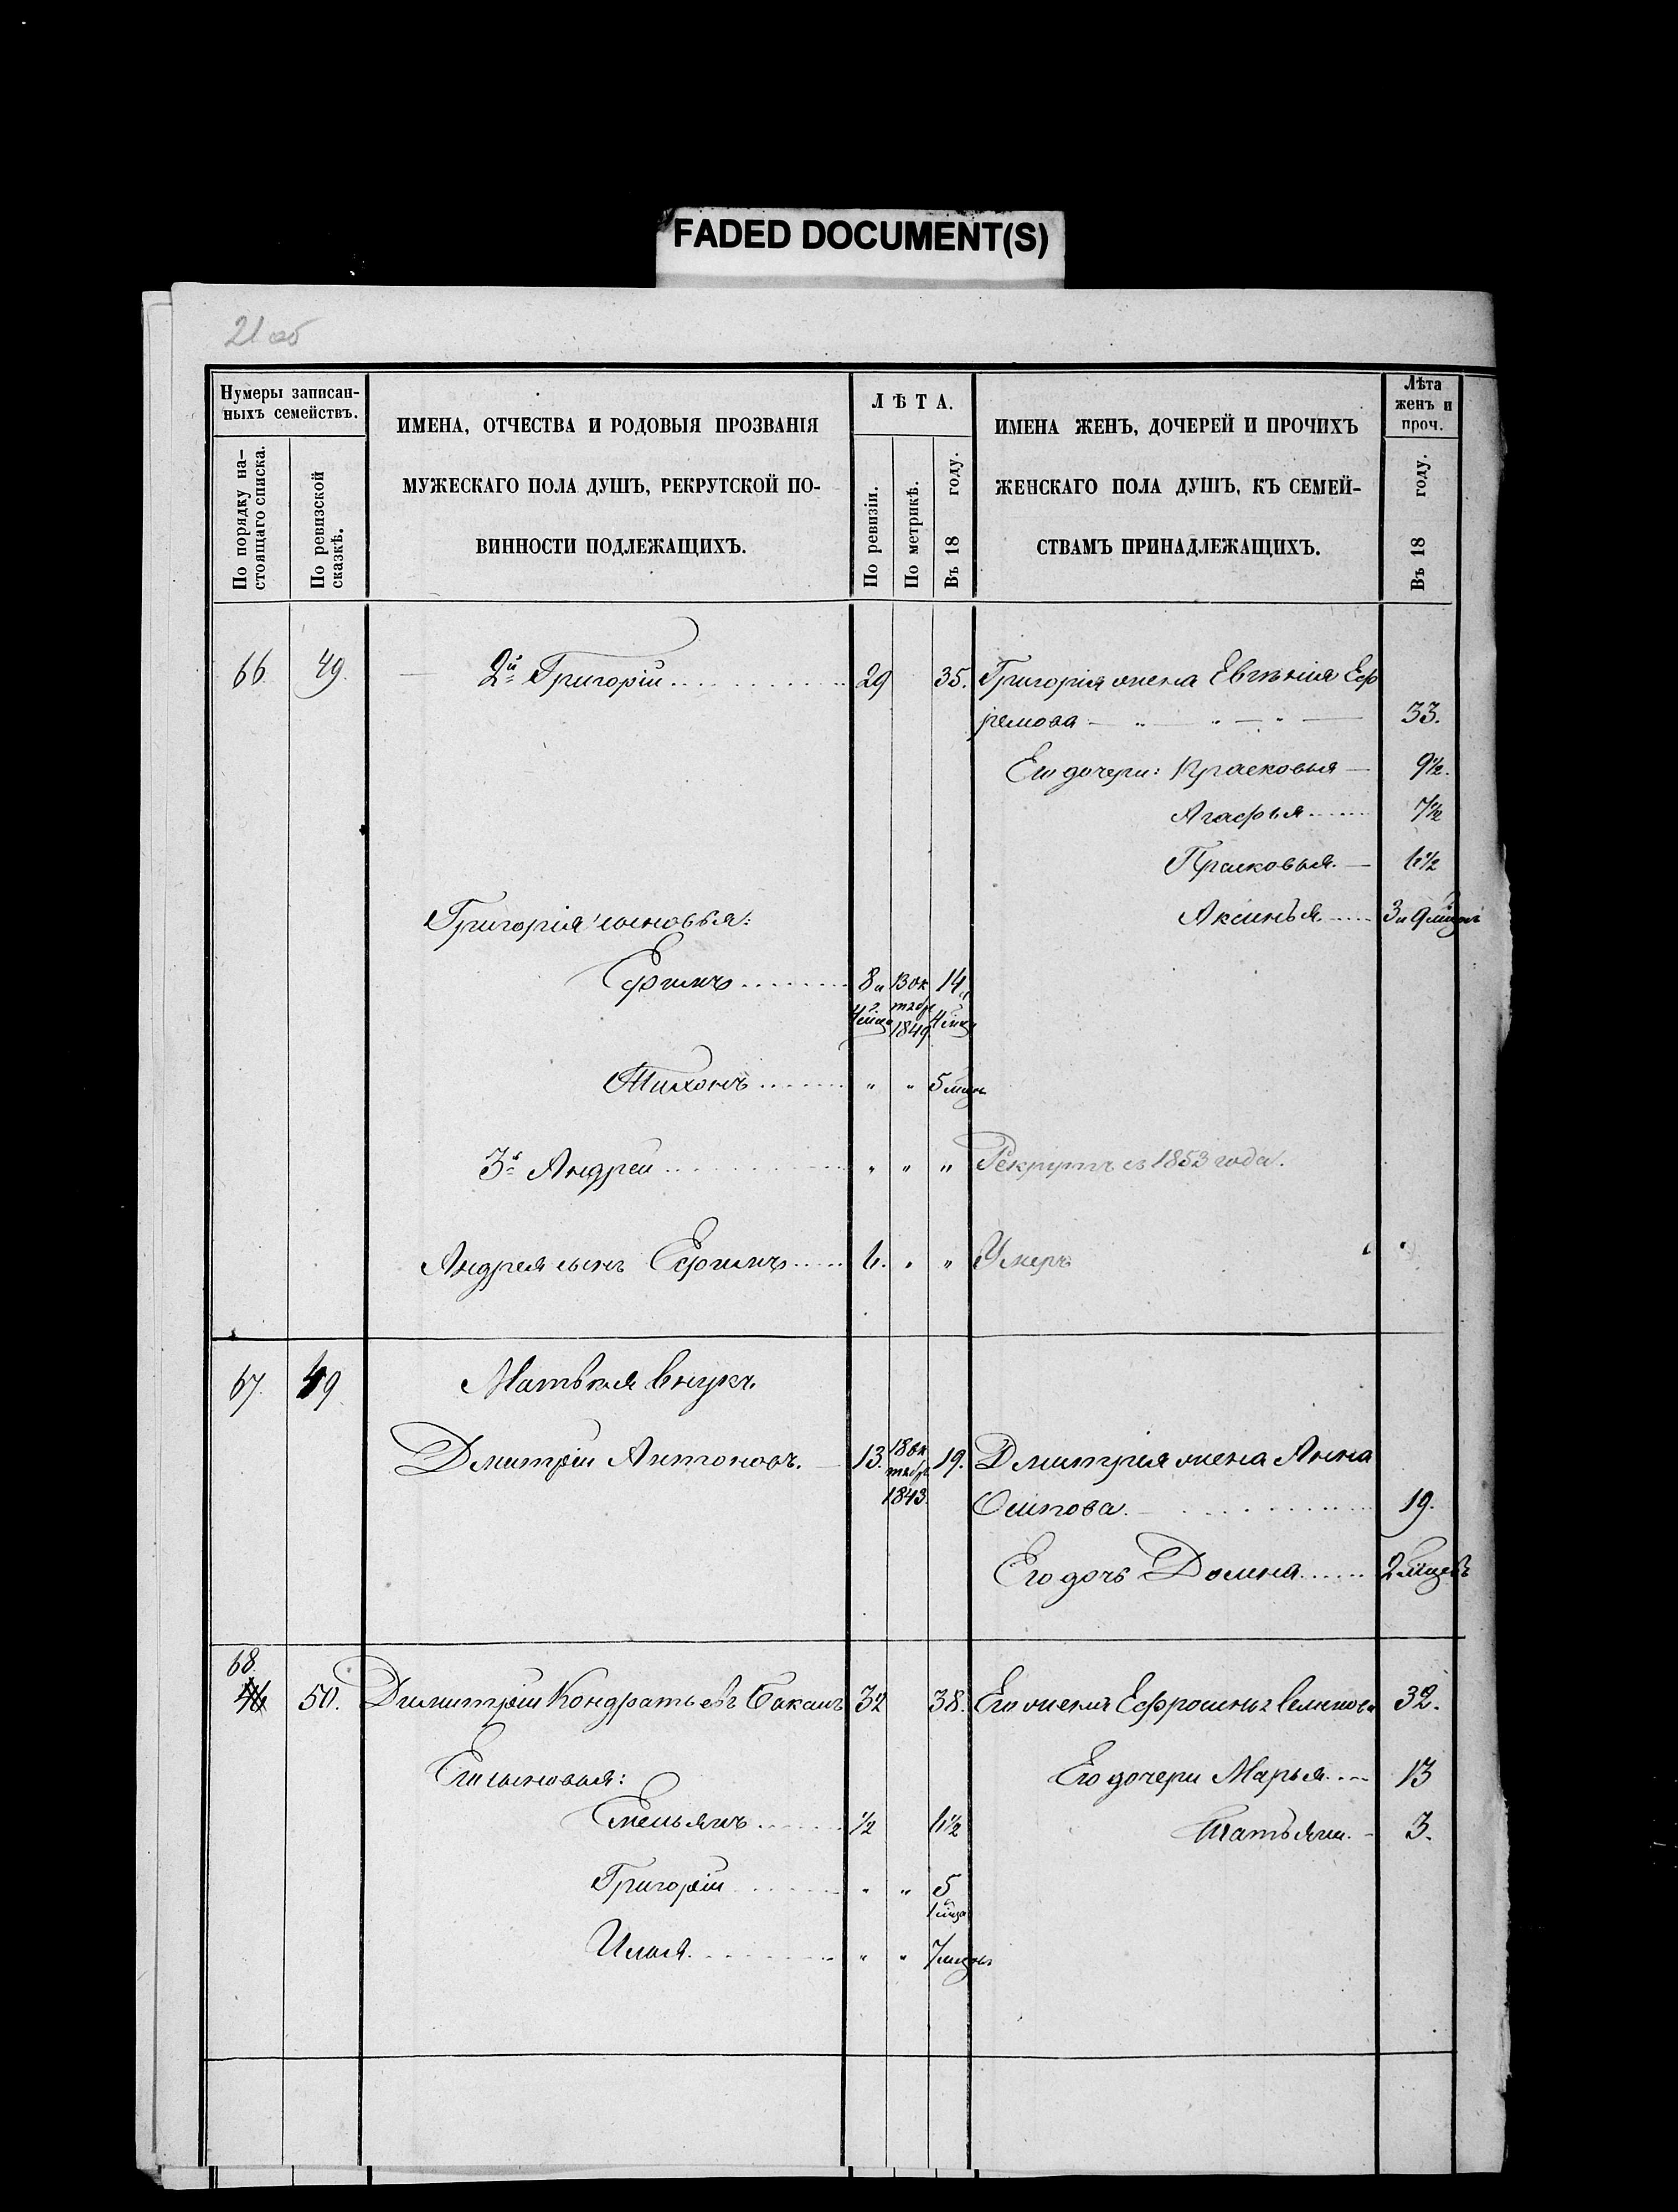 FADED DOCUMENT(S)
21 об
Нумеры записан-
ныхъ семействъ.
По порядку на-
стоящаго списка.
По ревизской
сказкѣ.
ИМЕНА, ОТЧЕСТВА И РОДОВЫЯ ПРОЗВАНІЯ
МУЖЕСКАГО ПОЛА ДУШЪ, РЕКРУТСКОЙ ПО-
ВИННОСТИ ПОДЛЕЖАЩИХЪ.
ЛѢТА.
По ревизіи.
По метрикѣ.
Въ 18 году.
ИМЕНА ЖЕНЪ, ДОЧЕРЕЙ И ПРОЧИХЪ
ЖЕНСКАГО ПОЛА ДУШЪ, КЪ СЕМЕЙ-
СТВАМЪ ПРИНАДЛЕЖАЩИХЪ.
Лѣта
женъ и
проч.
Въ 18 году.
66. 49. 2й Григорій 29 35. Григорія жена Евгенія Еф
ремова 33.
Его дочери: Прасковья 9½.
Агафья 7½
Прасковья 6½
Григорія сыновья: Аксинья 3 и 9 мѣсяц
Ефимъ 8 и 13 ок 14 и
4 мѣс тябр 4 мѣс
1849.
Тихонъ " " 5 мѣсяц
3й Андрей " " " Рекрутъ съ 1853 года.
Андрея сынъ Ефимъ 6. " " Умеръ
67. 49 Матвея внукъ
Дмитрій Антоновъ. 13. 18 ок 19. Дмитрія жена Анна
тябр
1843. Осипова. 19.
Его дочь Домна 2 мѣсяцъ
68.
50. Димитрій Кондратьевъ Бакаи 32 38. Его жена Ефросинья 32.
Его сыновья: Его дочери Марья 13
Емельянъ ½ 6½ Татьяна. 3.
Григорій " " 5
1 мѣся
Илья. " " 7 мѣсяц